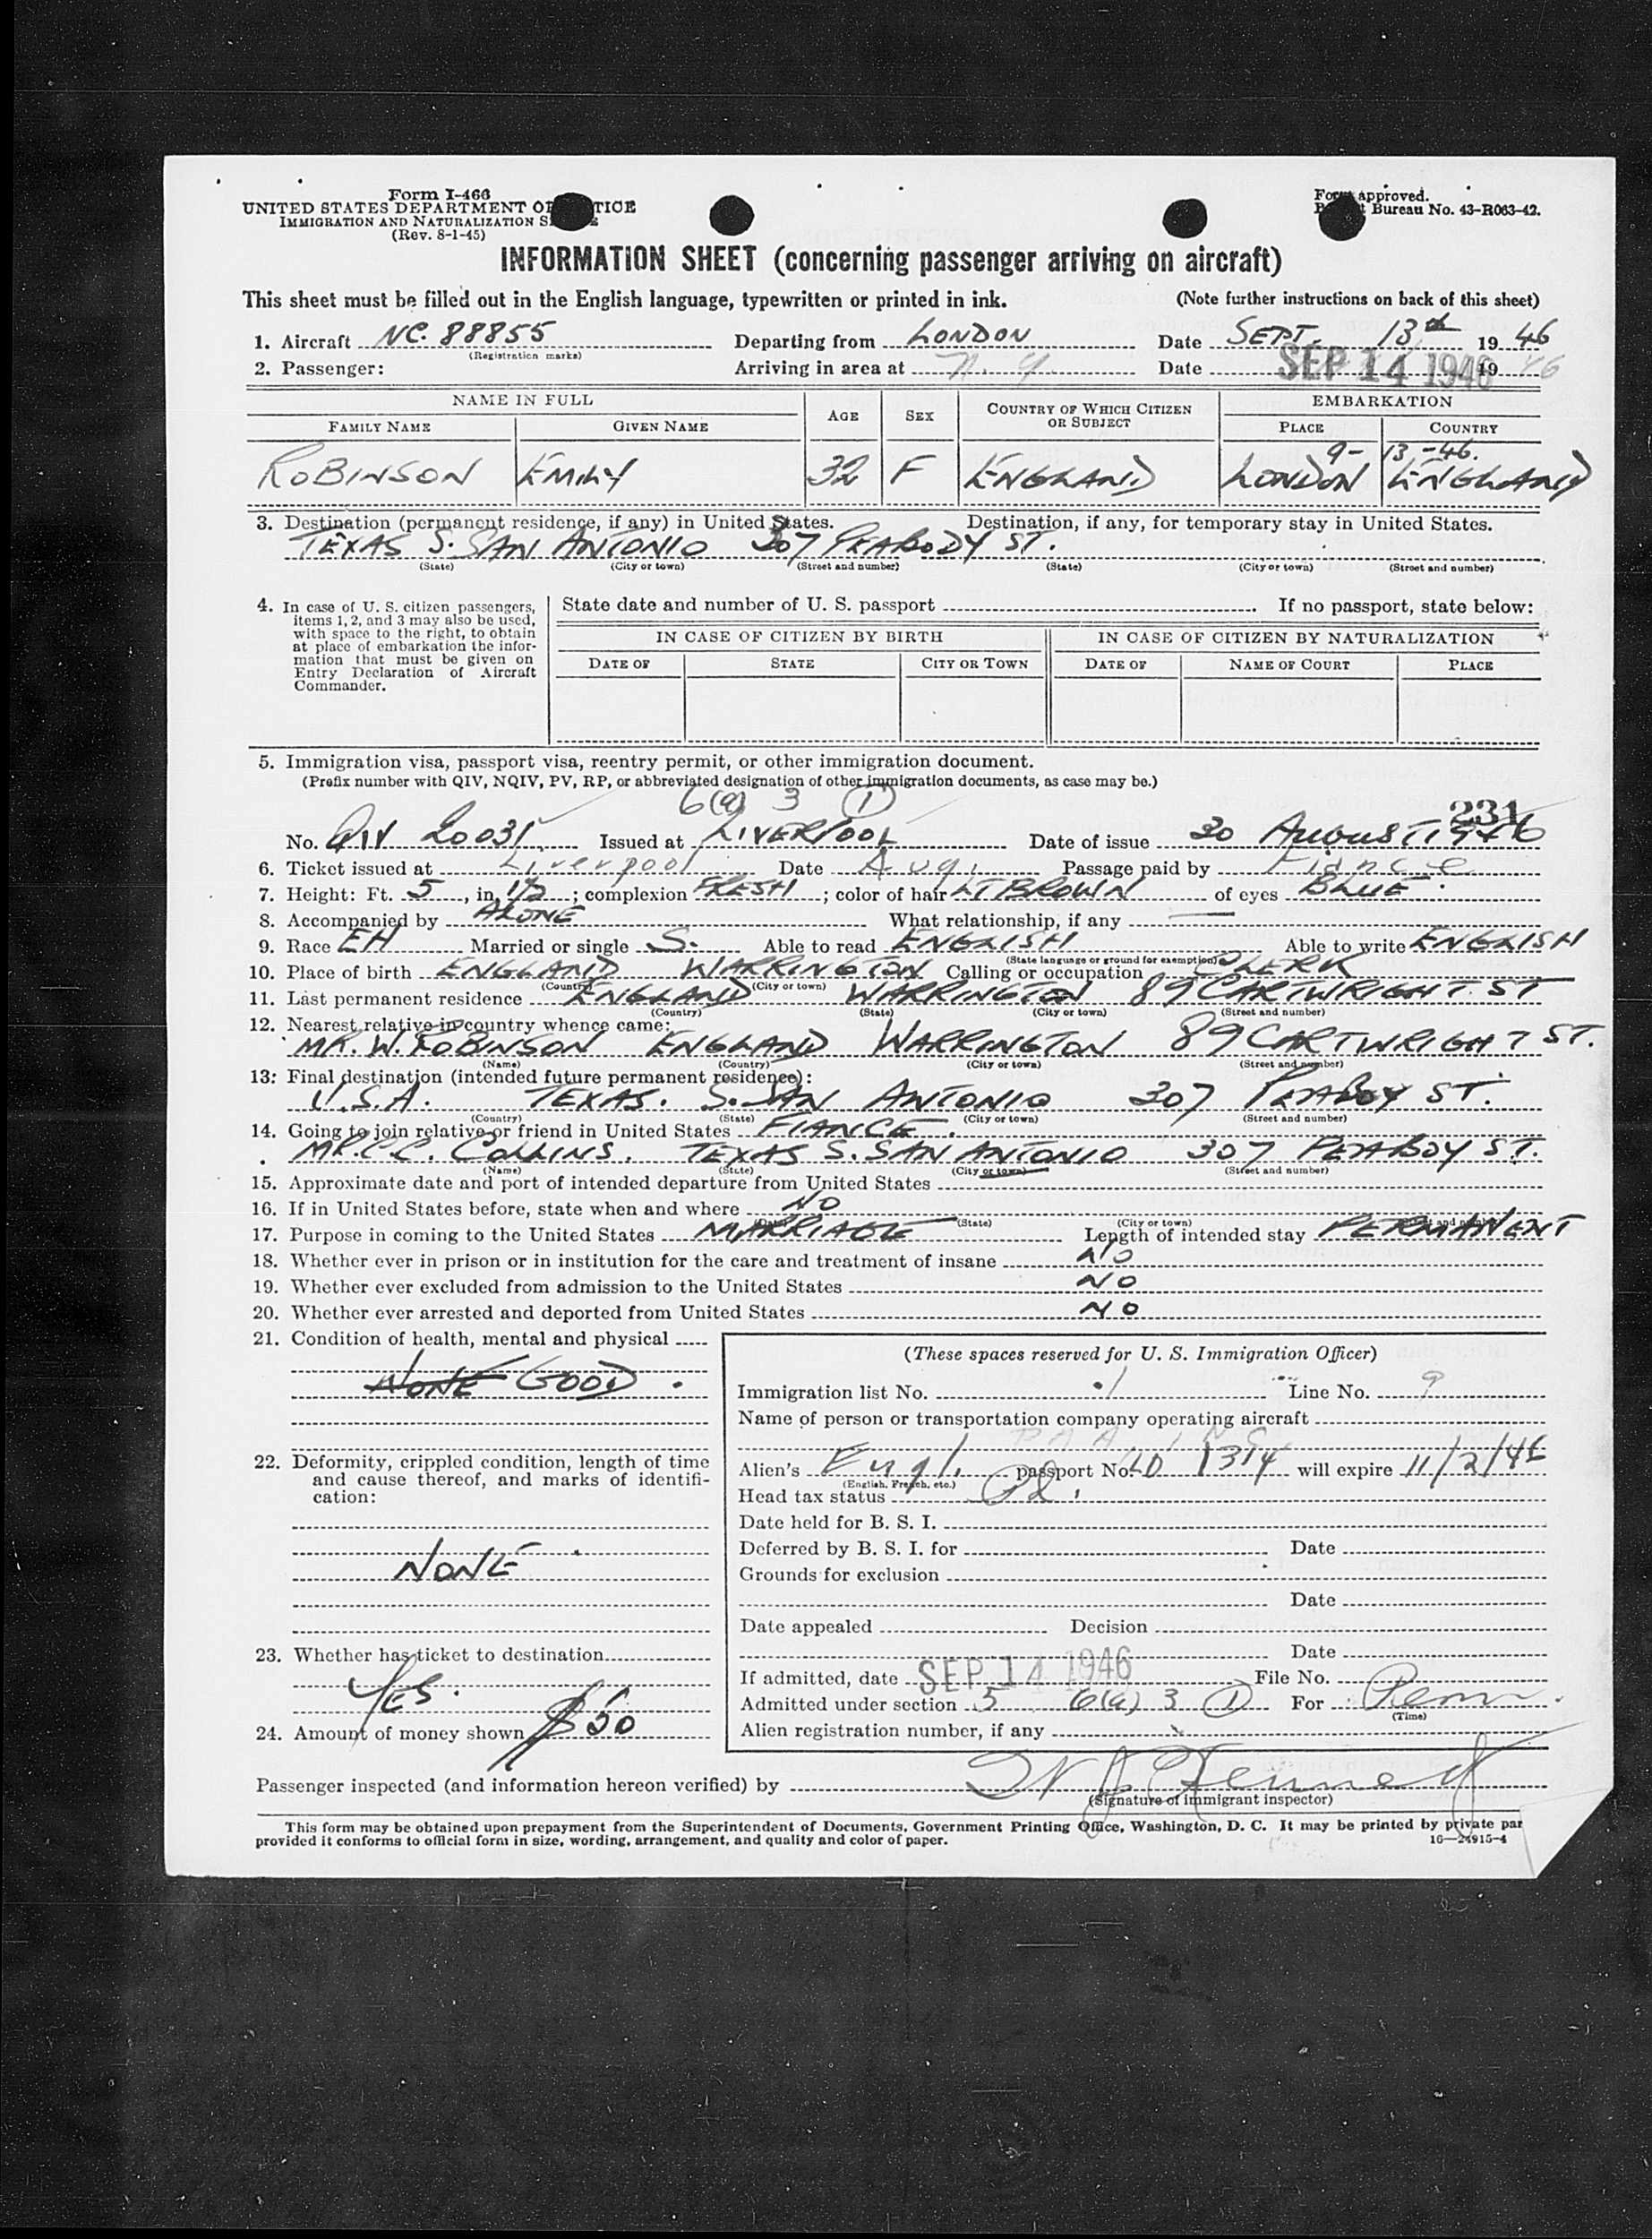 Form I-466
UNITED STATES DEPARTMENT OF TICE
IMMIGRATION AND NATURALIZATION S E
(Rev. 8-1-45)
Form approved.
Bureau No. 43-R063-42.
INFORMATION SHEET (concerning passenger arriving on aircraft)
This sheet must be filled out in the English language, typewritten or printed in ink. (Note further instructions on back of this sheet)
1. Aircraft NC. 88855 Departing from LONDON Date SEPT. 13th 19 46
(Registration marks)
2. Passenger: Arriving in area at N.Y. Date SEP 14 1946 19 46
NAME IN FULL AGE SEX COUNTRY OF WHICH CITIZEN OR SUBJECT EMBARKATION
FAMILY NAME GIVEN NAME PLACE COUNTRY
9-13-46.
ROBINSON EMILY 32 F ENGLAND LONDON ENGLAND
3. Destination (permanent residence, if any) in United States. Destination, if any, for temporary stay in United States.
TEXAS S. SAN ANTONIO 307 PEABODY ST.
(State) (City or town) (Street and number) (State) (City or town) (Street and number)
4. In case of U. S. citizen passengers, items 1, 2, and 3 may also be used, with space to the right, to obtain at place of embarkation the information that must be given on Entry Declaration of Aircraft Commander.
State date and number of U. S. passport If no passport, state below:
IN CASE OF CITIZEN BY BIRTH IN CASE OF CITIZEN BY NATURALIZATION
DATE OF STATE CITY OR TOWN DATE OF NAME OF COURT PLACE
5. Immigration visa, passport visa, reentry permit, or other immigration document.
(Prefix number with QIV, NQIV, PV, RP, or abbreviated designation of other immigration documents, as case may be.)
6(a) 3 (1) 231
No. QIV 20031 Issued at LIVERPOOL Date of issue 30 AUGUST 1946
6. Ticket issued at Liverpool Date Aug. Passage paid by Fiance
7. Height: Ft. 5, in. 1/2; complexion FRESH; color of hair LT BROWN of eyes BLUE.
8. Accompanied by ALONE What relationship, if any —
9. Race EH Married or single S. Able to read ENGLISH Able to write ENGLISH
(State language or ground for exemption)
10. Place of birth ENGLAND WARRINGTON Calling or occupation CLERK
(Country) (City or town)
11. Last permanent residence ENGLAND WARRINGTON 89 CARTWRIGHT ST
(Country) (State) (City or town) (Street and number)
12. Nearest relative in country whence came:
MR. W. ROBINSON ENGLAND WARRINGTON 89 CARTWRIGHT ST.
(Name) (Country) (City or town) (Street and number)
13. Final destination (intended future permanent residence):
U.S.A. TEXAS. S. SAN ANTONIO 307 PEABOY ST.
(Country) (State) (City or town) (Street and number)
14. Going to join relative or friend in United States FIANCE.
MR. C.C. COLLINS. TEXAS S. SAN ANTONIO 307 PEABOY ST.
(Name) (State) (City or town) (Street and number)
15. Approximate date and port of intended departure from United States
16. If in United States before, state when and where NO
(State) (City or town)
17. Purpose in coming to the United States MARRIAGE Length of intended stay PERMANENT
18. Whether ever in prison or in institution for the care and treatment of insane NO
19. Whether ever excluded from admission to the United States NO
20. Whether ever arrested and deported from United States NO
21. Condition of health, mental and physical
NONE GOOD.
22. Deformity, crippled condition, length of time and cause thereof, and marks of identification:
NONE.
23. Whether has ticket to destination
YES.
24. Amount of money shown $50
(These spaces reserved for U. S. Immigration Officer)
Immigration list No. 1 Line No. 9
Name of person or transportation company operating aircraft
P A A INC
Alien's Engl. passport No. LD 1314 will expire 11/2/46
(English, French, etc.)
Head tax status Pd.
Date held for B. S. I.
Deferred by B. S. I. for Date
Grounds for exclusion
Date
Date appealed Decision
Date
If admitted, date SEP 14 1946 File No.
Admitted under section 5 6(a) 3 (1) For Perm.
(Time)
Alien registration number, if any
Passenger inspected (and information hereon verified) by
(Signature of immigrant inspector)
This form may be obtained upon prepayment from the Superintendent of Documents, Government Printing Office, Washington, D. C. It may be printed by private par
provided it conforms to official form in size, wording, arrangement, and quality and color of paper. 16—24915-4